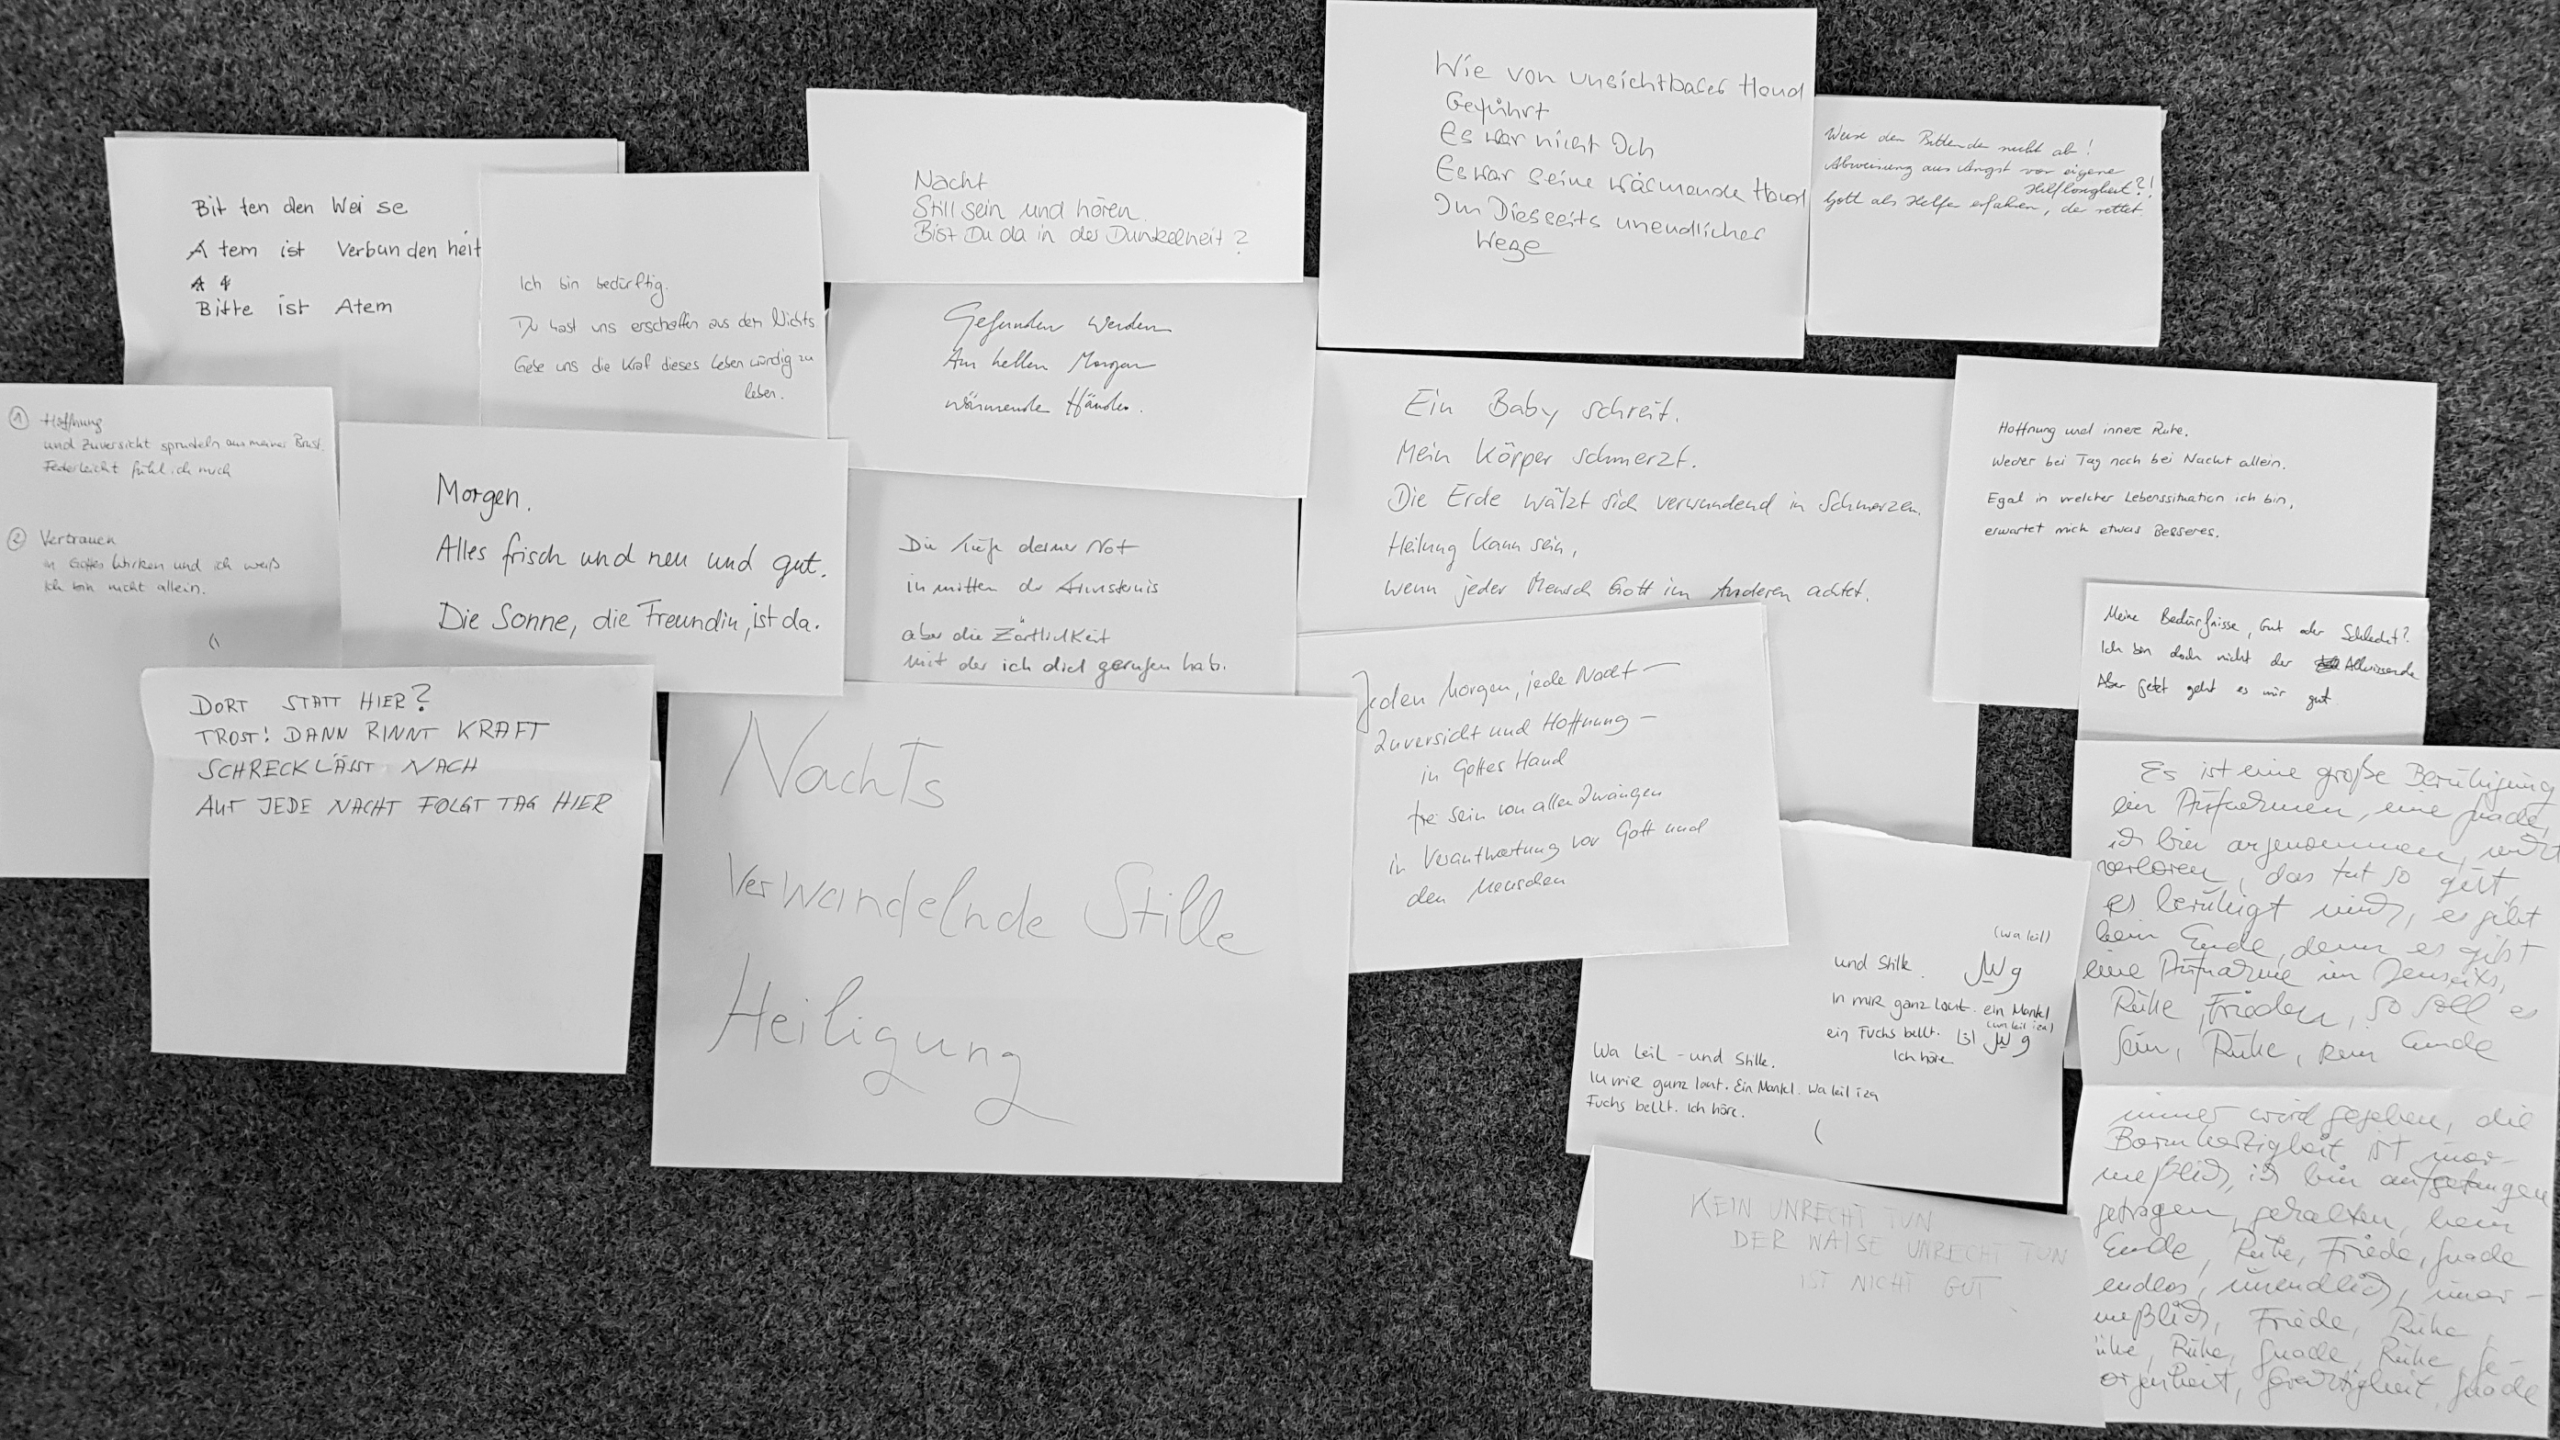 Bit ten den Wei se
A tem ist Verbun den heit
Bitte ist Atem
Ich bin bedürftig.
Du hast uns erschaffen aus dem Nichts
Gebe uns die Kraf dieses Leben würdig zu
leben.
Nacht
Still sein und hören.
Bist Du da in der Dunkelheit?
Gefunden werden
Am hellen Morgen
wärmende Hände.
Wie von unsichtbarer Hand
Geführt
Es war nicht Ich
Es war seine wärmende Hand
Im Diesseits unendlicher
Wege
Weise den Bittenden nicht ab!
Abweisung aus Angst vor eigene
Hilflosigkeit?!
Gott als Helfer erfahren, der rettet.
① Hoffnung
und Zuversicht sprudeln aus meiner Brust.
Federleicht fühl ich mich
② Vertrauen
in Gottes Wirken und ich weiß
Ich bin nicht allein.
Morgen.
Alles frisch und neu und gut.
Die Sonne, die Freundin, ist da.
Die Tiefe deiner Not
in mitten der Finsternis
aber die Zärtlichkeit
mit der ich dich gerufen hab.
Ein Baby schreit.
Mein Körper schmerzt.
Die Erde wälzt sich verwundend in Schmerzen.
Heilung kann sein,
wenn jeder Mensch Gott im Anderen achtet.
Hoffnung und innere Ruhe.
Weder bei Tag noch bei Nacht allein.
Egal in welcher Lebenssituation ich bin,
erwartet mich etwas Besseres.
Meine Bedürfnisse, Gut oder Schlecht?
Ich bin doch nicht der Allwissende
Aber jetzt geht es mir gut
DORT STATT HIER?
TROST! DANN RINNT KRAFT
SCHRECK LÄSST NACH
AUF JEDE NACHT FOLGT TAG HIER
Nachts
Verwandelnde Stille
Heiligung
Jeden Morgen, jede Nacht —
Zuversicht und Hoffnung —
in Gottes Hand
frei sein von allen Zwängen
in Verantwortung vor Gott und
den Menschen
(wa leil)
und Stille.
In mir ganz laut. ein Mantel
ein Fuchs bellt.
Ich höre
Wa Leil - und Stille.
In mir ganz laut. Ein Mantel. Wa leil iza
Fuchs bellt. Ich höre.
KEIN UNRECHT TUN
DER WAISE UNRECHT TUN
IST NICHT GUT
Es ist eine große Beruhigung
ein Aufnehmen, eine Gnade,
ich bin angenommen, nicht
verloren, das tut so gut,
es beruhigt mich, es gibt
kein Ende, denn es gibt
eine Aufnahme im Jenseits,
Ruhe, Frieden, so soll es
sein, Ruhe, kein Ende
immer wird gegeben, die
Barmherzigkeit ist uner-
meßlich, ich bin aufgefangen
getragen, gehalten, kein
Ende, Ruhe, Friede, Gnade
endlos, unendlich, uner-
meßlich, Friede, Ruhe,
Ruhe, Gnade, Ruhe, Ge-
orgenheit, Gnade